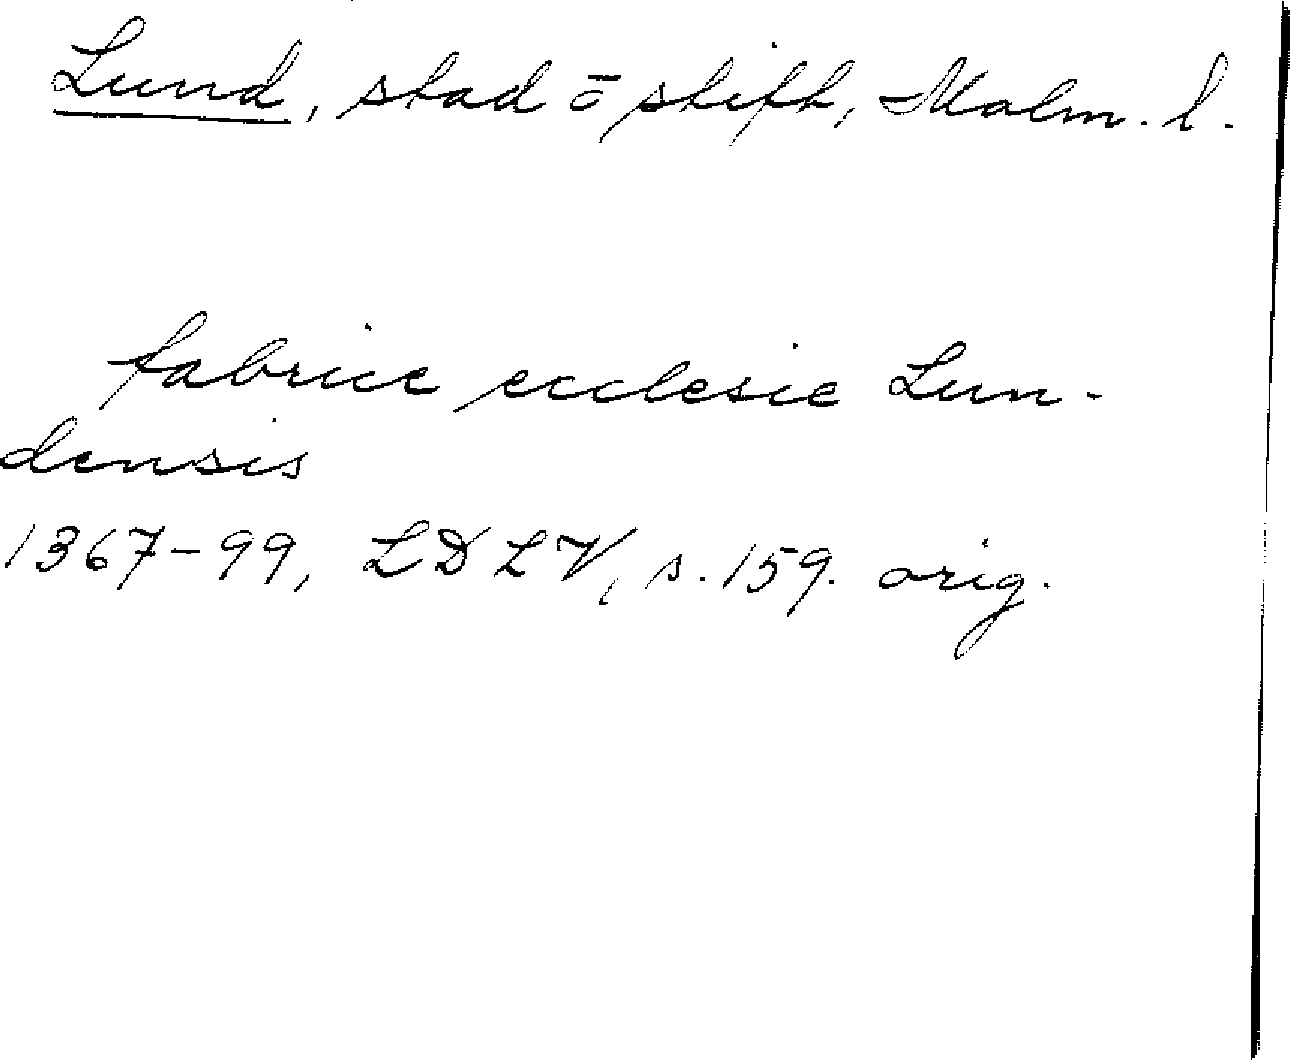 Lund, stad ō stift, Malm. l.
fabrice ecclesie Lun-
densis
1367-99, LDLV, s. 159. orig.